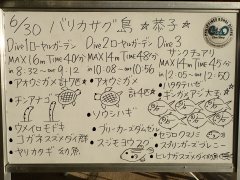 6/30 バリカサグ島 ☆恭子☆
Dive1 ローヤルガーデン
MAX16m Time40分
in 8:32 〜 9:12
アオウミガメ 計7匹
チンアナゴ
ウメイロモドキ
コガネスズメダイ群
ヤリカタギ 幼魚
Dive2 ローヤルガーデン
MAX14m Time48分
in 10:08 〜 10:56
アオウミガメ 計4匹
ソウシハギ
ブリーカーズダムセル
スジモヨウフグ
Dive3
サンクチュアリ
MAX14m Time45分
in 12:05 〜 12:50
ハタタテハゼ
ギンガメアジ大玉
セジロクマノミ
スプリンガーズ・ブレニー
ヒレナガスズメダイ幼魚